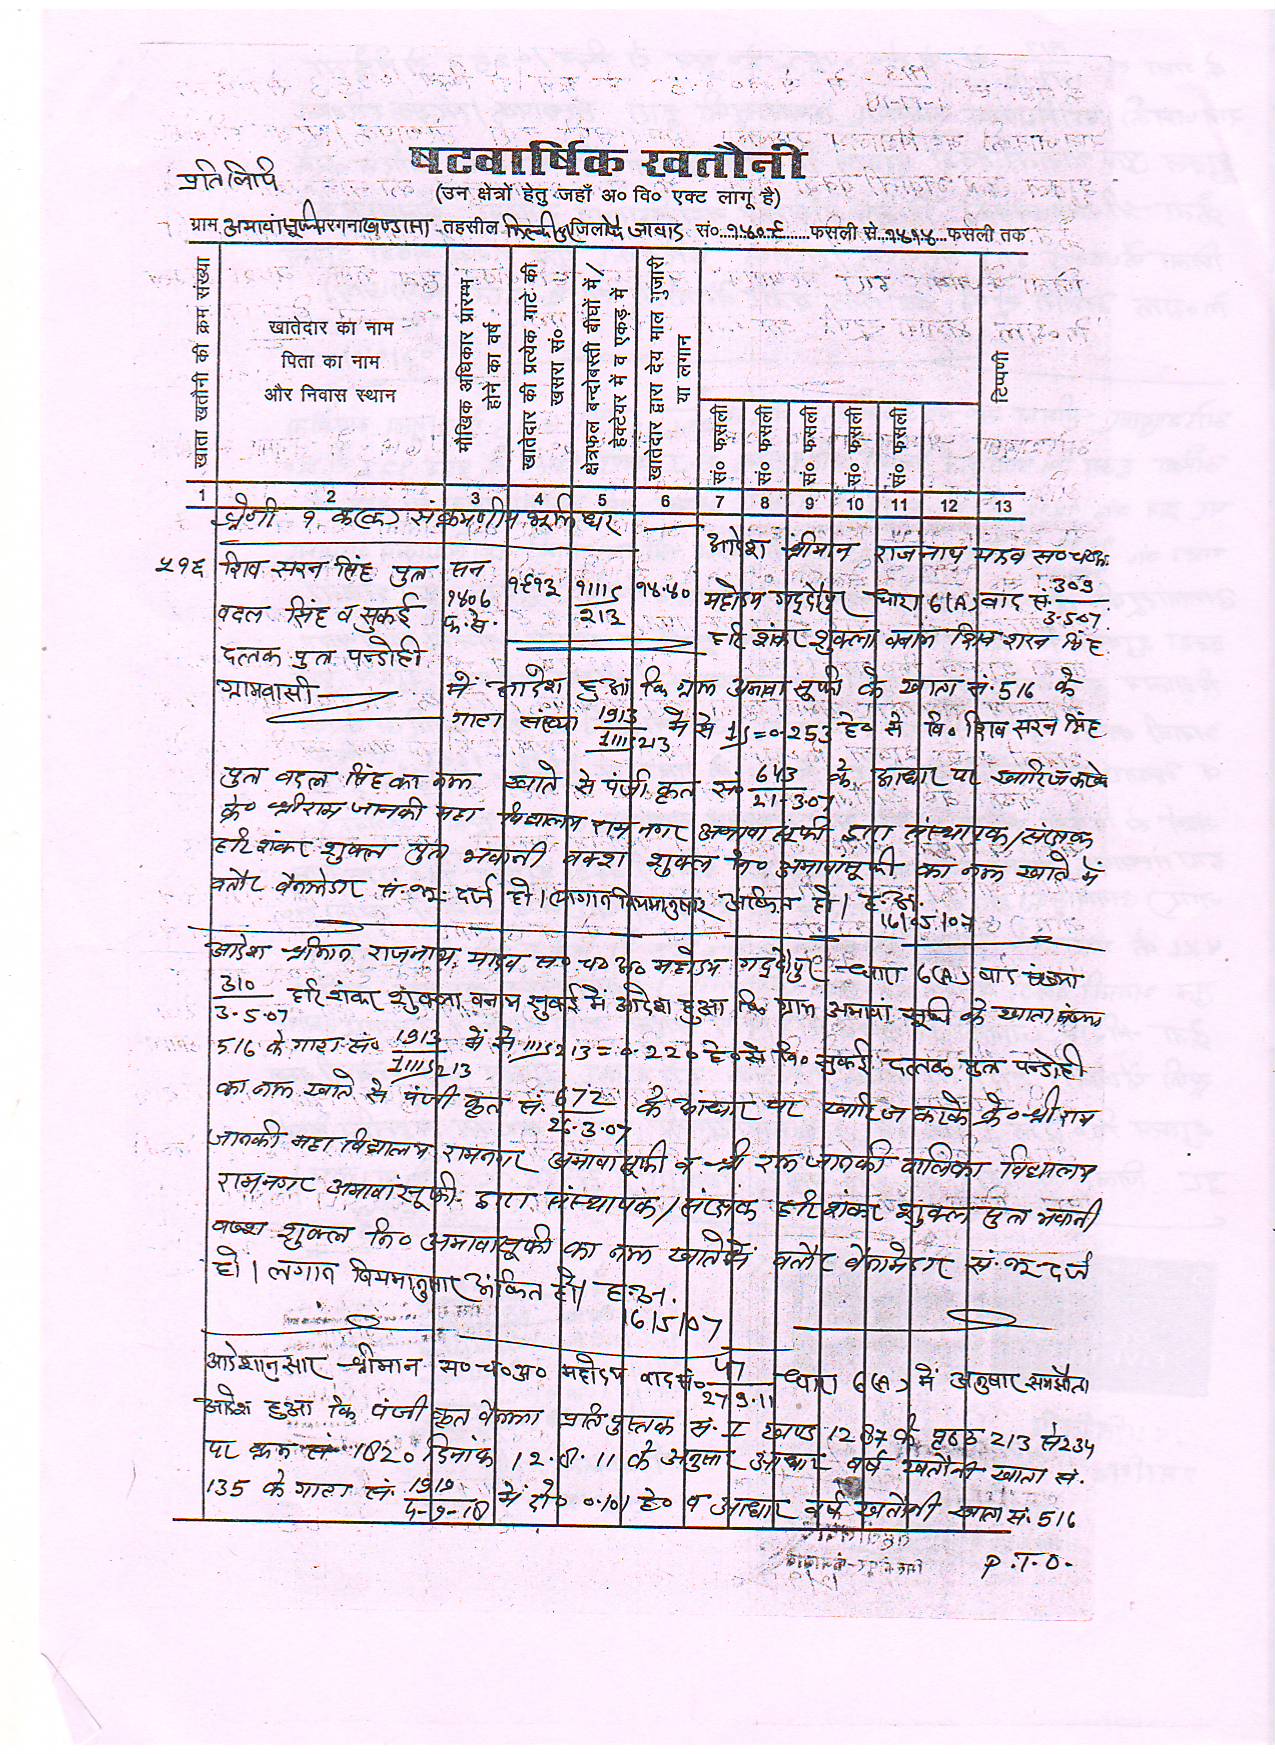 प्रतिलिपि
षटवार्षिक खतौनी
(उन क्षेत्रों हेतु जहाँ अ० वि० एक्ट लागू है)
ग्राम अमावां सूफी परगना खण्डासा तहसील मिल्कीपुर जिला फैजाबाद सं० १४०९ फसली से १४१४ फसली तक
खाता खतौनी की क्रम संख्या
खातेदार का नाम
पिता का नाम
और निवास स्थान
मौखिक अधिकार प्रारम्भ
होने का वर्ष
खातेदार की प्रत्येक गाटे की
खसरा सं०
क्षेत्रफल बन्दोबस्ती बीघों में/
हेक्टेयर में व एकड़ में
खातेदार द्वारा देय माल गुजारी
या लगान
सं० फसली
सं० फसली
सं० फसली
सं० फसली
सं० फसली
टिप्पणी
1 2 3 4 5 6 7 8 9 10 11 12 13
श्रेणी १ क(क) संक्रमणीय भूमिधर
आदेश श्रीमान राजनाथ यादव स०च०अ०
५१६ शिव सरन सिंह पुत्र सन
बदल सिंह व सुकई
दत्तक पुत्र पन्डोही
ग्रामवासी
१४०६
फ.से.
१९१३
१॥।ऽ
२१३
१५.५०
महोदय गद्दौपुर धारा 6(A) वाद सं. 303/3.5.07
हरि शंकर शुक्ला बनाम शिव शरन सिंह
में आदेश हुआ कि ग्राम अमावा सूफी के खाता सं. 516 के
गाटा संख्या 1913/1॥।ऽ213 में से 1ऽ=0.253 हे० से वि० शिव सरन सिंह
पुत्र बदल सिंह का नाम खाते से पंजीकृत सं० 643/21-3.07 के आधार पर खारिज करके
क्रे० श्रीराम जानकी महा विद्यालय राम नगर अमावा सूफी द्वारा संस्थापक/संरक्षक
हरि शंकर शुक्ल पुत्र भवानी बक्श शुक्ल नि० अमावांसूफी का नाम खाते में
बतौर बैनामेदार सं.भू. दर्ज हो। लगान नियमानुसार अंकित हो। ह.अ.
16/05/07
आदेश श्रीमान राजनाथ यादव स० च० अ० महोदय गद्दौपुर धारा 6(A) वाद संख्या
310/3.5.07 हरि शंकर शुक्ला बनाम सुकई में आदेश हुआ कि ग्राम अमावा सूफी के खाता संख्या
516 के गाटा सं० 1913/1॥।ऽ213 में से ॥।ऽ213=0.220 हे० से वि० सुकई दत्तक पुत्र पन्डोही
का नाम खाते से पंजीकृत सं. 672/26.3.07 के आधार पर खारिज करके क्रे० श्रीराम
जानकी महा विद्यालय रामनगर अमावा सूफी व श्री राम जानकी बालिका विद्यालय
रामनगर अमावांसूफी द्वारा संस्थापक/संरक्षक हरि शंकर शुक्ल पुत्र भवानी
बक्श शुक्ल नि० अमावासूफी का नाम खाते में बतौर बैनामेदार सं.भू. दर्ज
हो। लगान नियमानुसार अंकित हो। ह.अ.
16/5/07
आदेशानुसार श्रीमान स०च०अ० महोदय वाद सं० 57/27.9.11 धारा 6(A) में अनुसार समझौता
आदेश हुआ कि पंजीकृत बैनामा प्रति पुस्तक सं. I खण्ड 1287 के पृष्ठ 213 से 234
पर क्रम सं 1820 दिनांक 12.8.11 के अनुसार आधार वर्ष खतौनी खाता सं.
135 के गाटा सं. 1919/5-9-18 में से 0.101 हे० व आधार वर्ष खतौनी खाता सं. 516
P.T.O.